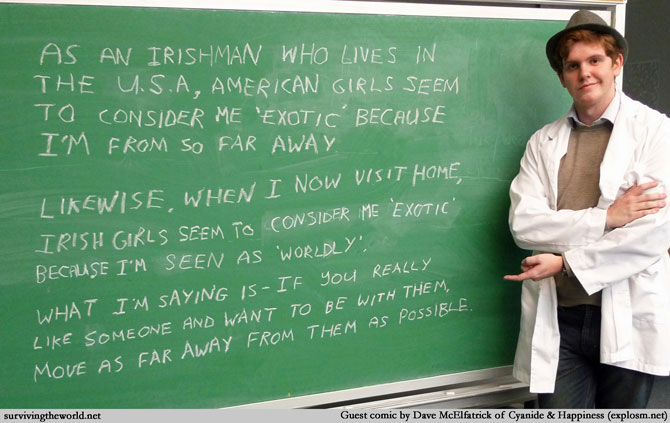 AS AN IRISHMAN WHO LIVES IN
THE U.S.A, AMERICAN GIRLS SEEM
TO CONSIDER ME 'EXOTIC' BECAUSE
I'M FROM SO FAR AWAY.
LIKEWISE, WHEN I NOW VISIT HOME,
IRISH GIRLS SEEM TO CONSIDER ME 'EXOTIC'
BECAUSE I'M SEEN AS 'WORLDLY'.
WHAT I'M SAYING IS - IF YOU REALLY
LIKE SOMEONE AND WANT TO BE WITH THEM,
MOVE AS FAR AWAY FROM THEM AS POSSIBLE.
survivingtheworld.net
Guest comic by Dave McElfatrick of Cyanide & Happiness (explosm.net)